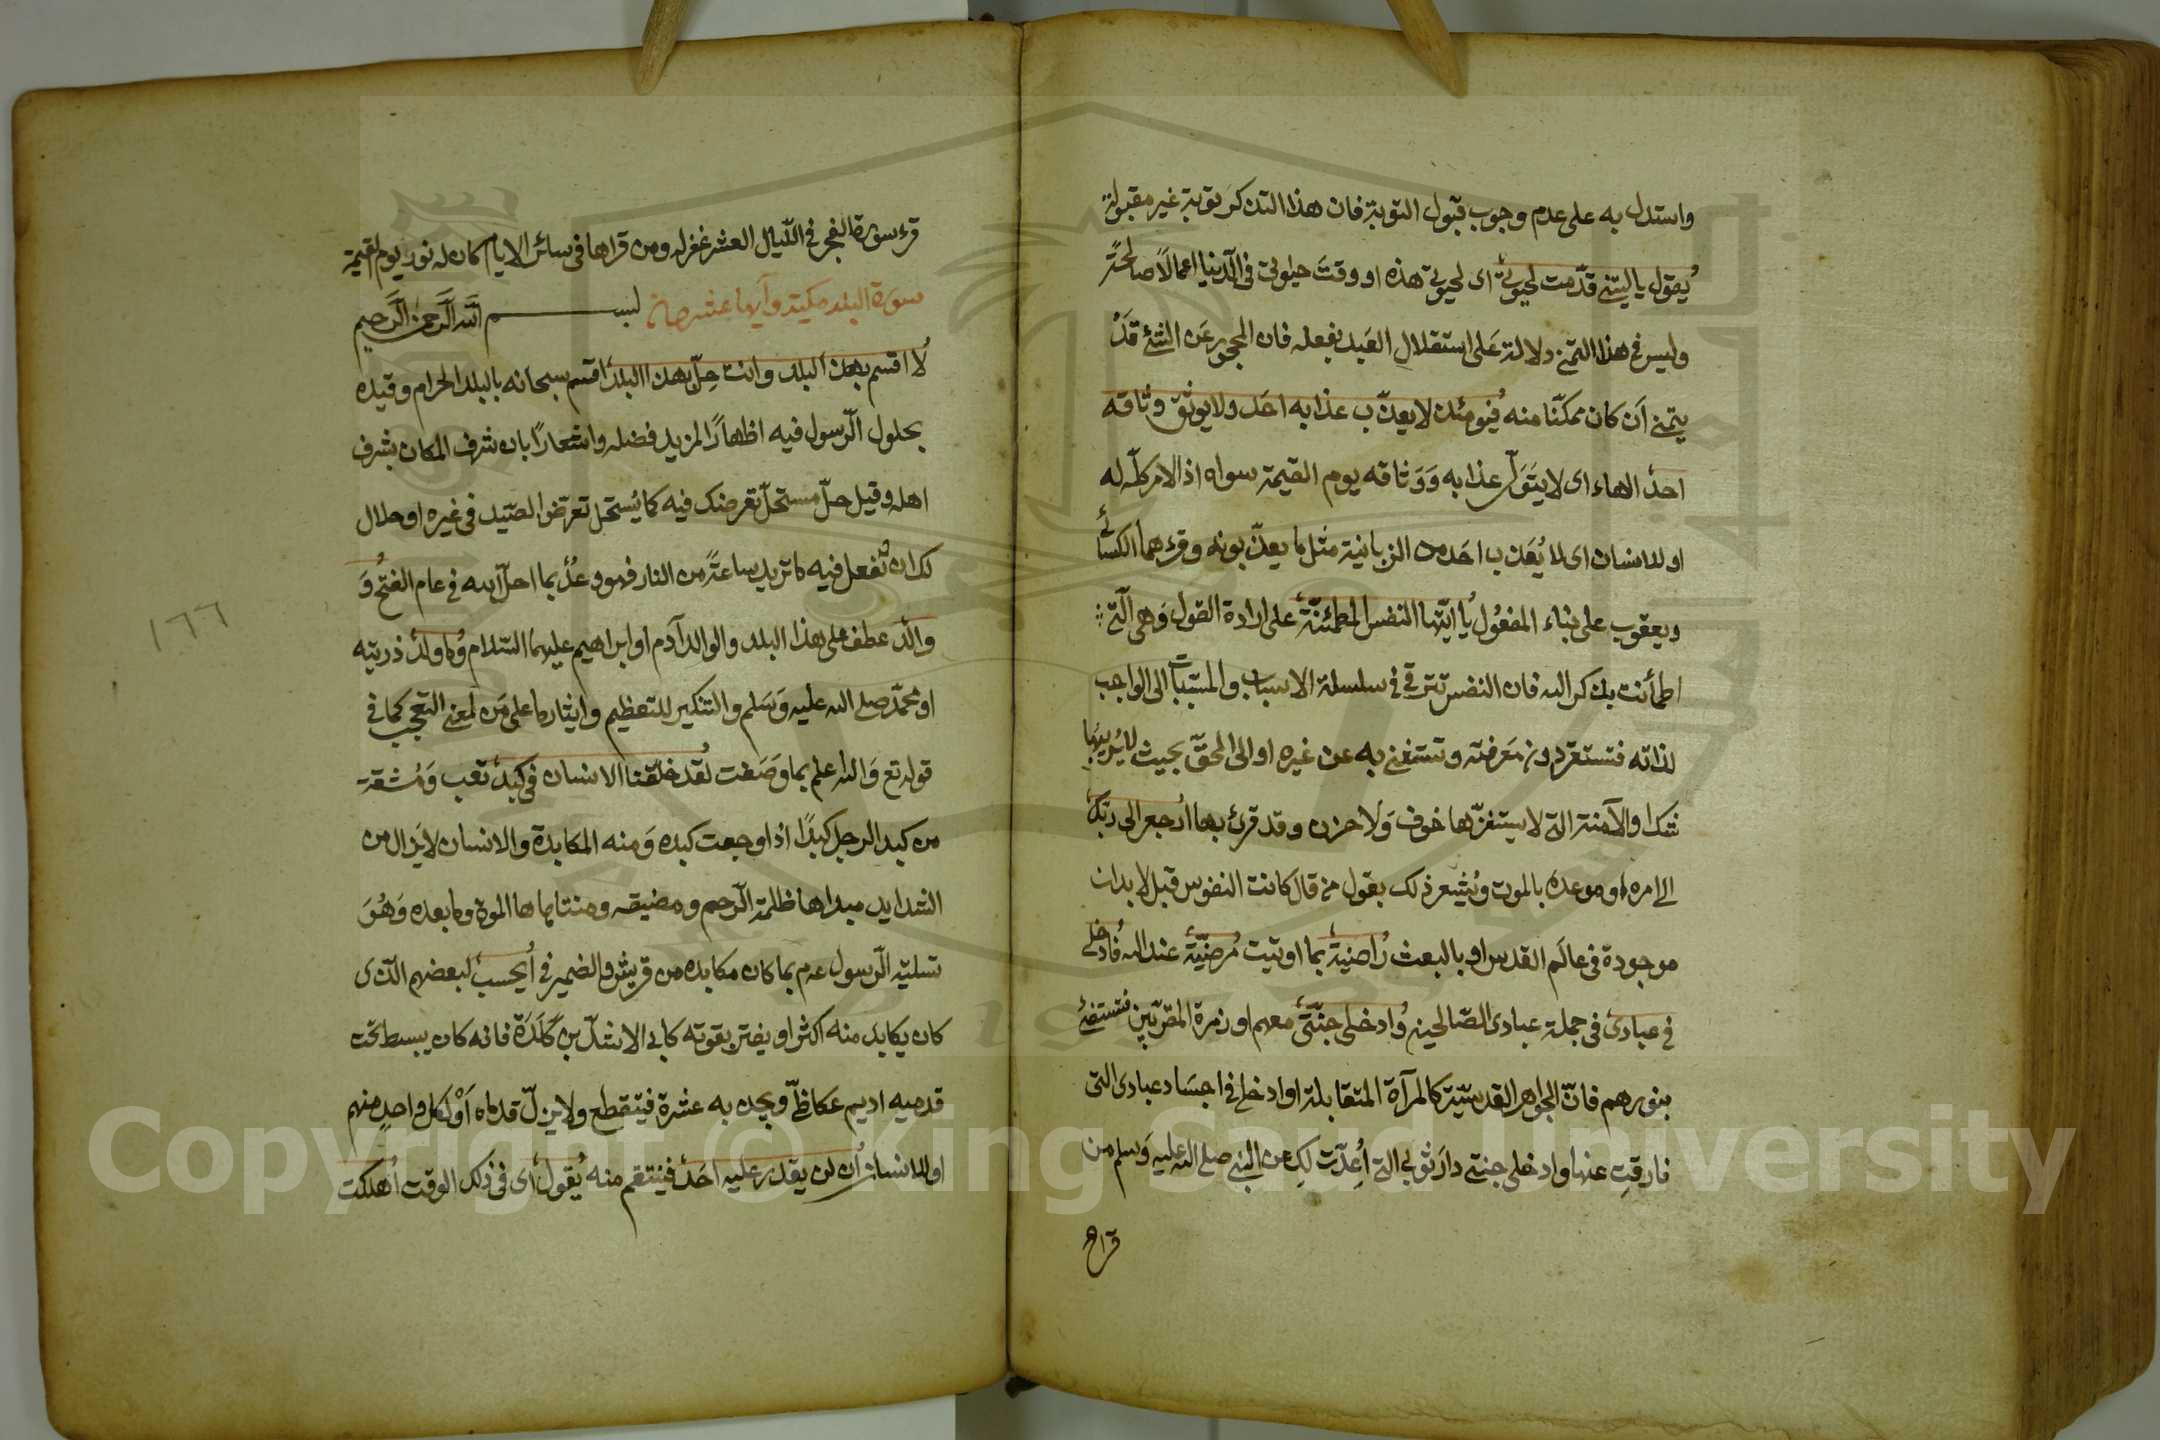 واستدل به على عدم وجوب قبول التوبة فان هذا التذكر توبة غير مقبولة
يقول ياليتني قدمت لحيوتي اى لحيوتي هذه او وقت حيوتي في الدنيا اعمالا صالحة
وليس في هذا التمني دلالة على استقلال العبد بفعله فان المحجور عن الشئ قد
يتمنى ان كان ممكنا منه فيومئذ لا يعذب عذابه احد ولا يوثق وثاقه
احد الهاء اى لا يتولى عذابه ووثاقه يوم القيمة سواه اذ الامر كله له
او للانسان اى لا يعذب احد من الزبانية مثل ما يعذبونه وقرءهما الكسائي
ويعقوب على بناء المفعول يا ايتها النفس المطمئنة على ارادة القول وهى التي
اطمأنت بذكر الله فان النفس تترقى في سلسلة الاسباب والمسببات الى الواجب
لذاته فتستقر دون معرفته وتستغني به عن غيره او الى الحق بحيث لا يريبها
شك او الآمنة التي لا يستفزها خوف ولا حزن وقد قرئ بها ارجعى الى ربك
الى امره او موعده بالموت ويشعر ذلك بقول من قال كانت النفوس قبل الابدان
موجودة في عالم القدس او بالبعث راضية بما اوتيت مرضية عند الله فادخلي
في عبادى في جملة عبادى الصالحين وادخلى جنتى معهم او زمرة المقربين فتستضئ
بنورهم فان الجواهر القدسية كالمرآة المتقابلة او ادخلي في اجساد عبادى التى
فارقت عنها وادخلى جنتي دار ثوابي التي اعدت لك عن النبي صلى الله عليه وسلم من
قراه
قرء سورة الفجر في الليال العشر غفر له ومن قراها في سائر الايام كان له نور يوم القيمة
سورة البلد مكية وآيها عشرون بسم الله الرحمن الرحيم
لا اقسم بهذا البلد وانت حل بهذا البلد اقسم سبحانه بالبلد الحرام وقيده
بحلول الرسول فيه اظهارا لمزيد فضله واشعارا بان شرف المكان بشرف
اهله وقيل حل مستحل تعرضك فيه كما يستحل تعرض الصيد في غيره او حلال
لك ان تفعل فيه ما تريد ساعة من النار فهو وعد بما احل الله في عام الفتح و
والد عطف على هذا البلد والوالد آدم او ابراهيم عليهما السلام وما ولد ذريته
او محمد صلى الله عليه وسلم والتنكير للتعظيم وايثار ما على من لمعنى التعجب كما في
قوله تع والله اعلم بما وضعت لقد خلقنا الانسان في كبد تعب ومشقة
من كبد الرجل كبدا اذا وجعت كبده ومنه المكابدة والانسان لا يزال من
الشدايد مبداها ظلمة الرحم ومضيقه ومنتهاها الموت وما بعده وهو
تسلية الرسول عم بما كان مكابده من قريش والضمير في ايحسب لبعضهم الذى
كان يكابد منه اكثر او يفتر بقوته كابى الاشد بن كلدة فانه كان يبسط تحت
قدميه اديم عكاظى ويجذبه عشرة فيتقطع ولا يزل قدماه او لكل واحد منهم
او للانسان ان لن يقدر عليه احد فينتقم منه يقول اى في ذلك الوقت اهلكت
١٦٦
Copyright © King Saud University